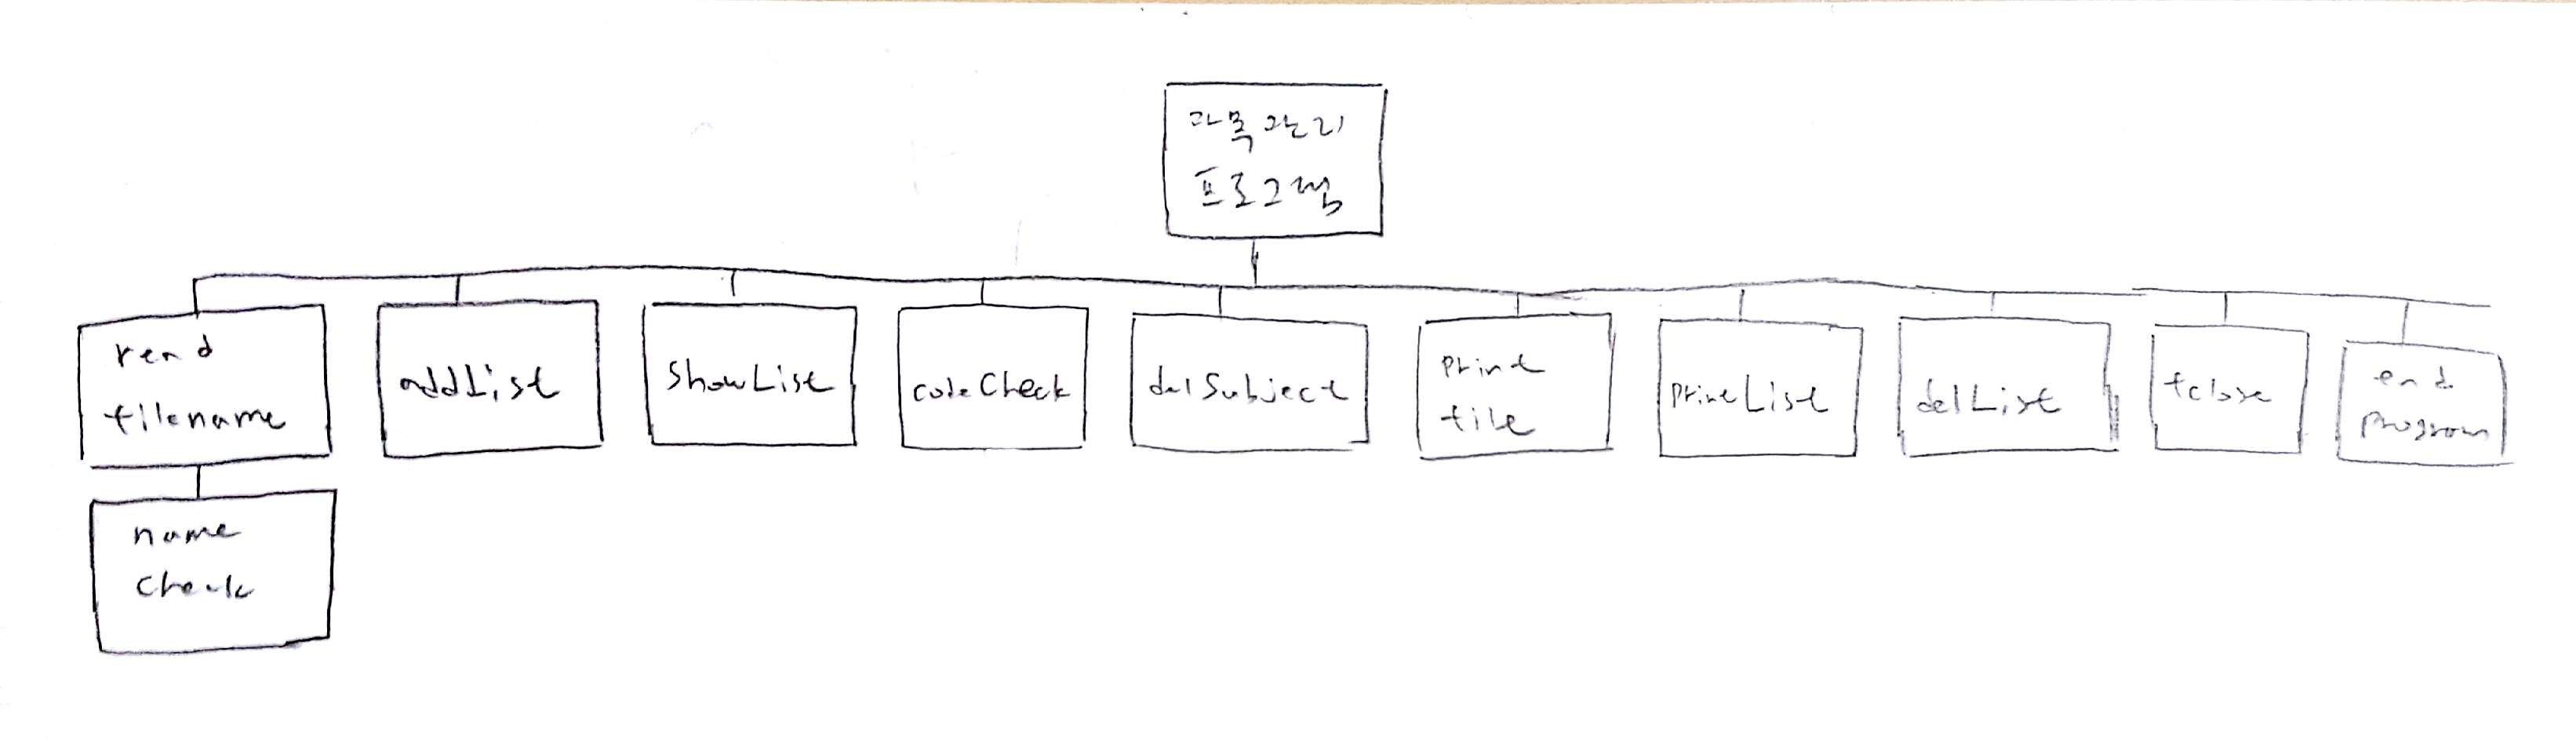 과목관리
프로그램
read
filename
addList
showList
codeCheck
delSubject
print
file
printList
delList
fclose
end
program
name
check